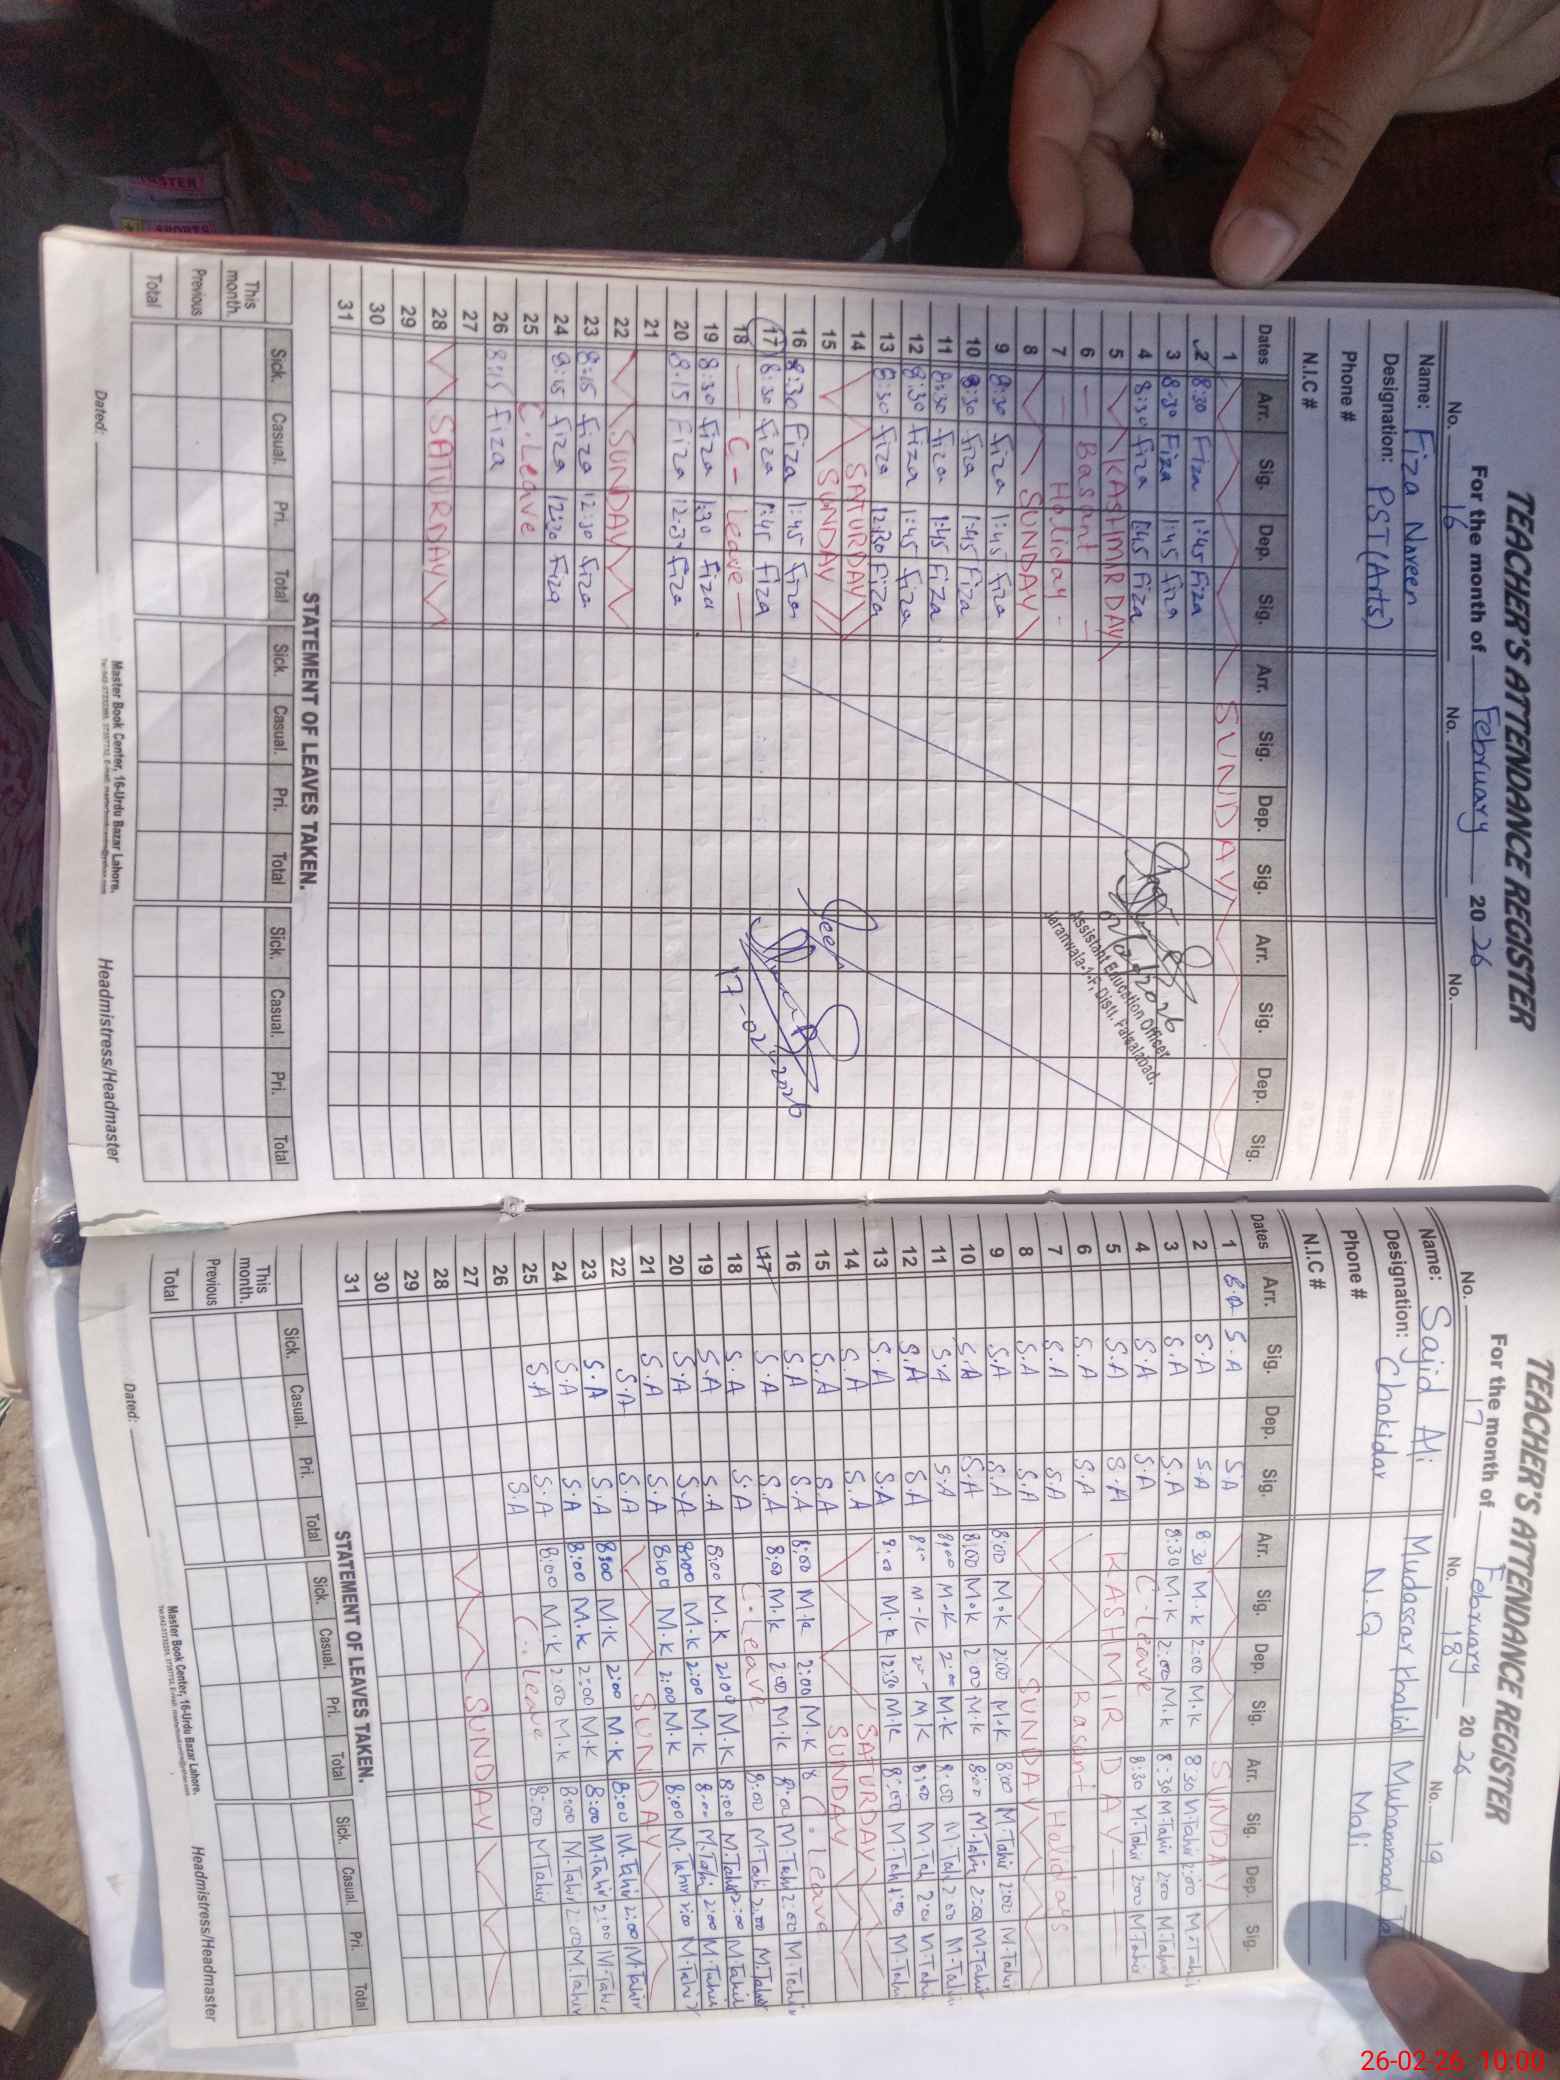 TEACHER'S ATTENDANCE REGISTER
For the month of February 2026
No. 16 No. No.
Name: Fiza Noreen
Designation: PST (Arts)
Phone #
N.I.C #
Dates Arr. Sig. Dep. Sig. Arr. Sig. Dep. Sig. Arr. Sig. Dep. Sig.
1 SUNDAY
2 8:30 Fiza 1:45 Fiza
3 8:30 Fiza 1:45 Fiza
4 8:30 Fiza 1:45 Fiza
5 KASHMIR DAY
6 Basant
7 Holiday
8 SUNDAY
9 8:30 Fiza 1:45 Fiza
10 8:30 Fiza 1:45 Fiza
11 8:30 Fiza 1:45 Fiza
12 8:30 Fiza 1:45 Fiza
13 8:30 Fiza 12:30 Fiza
14 SATURDAY
15 SUNDAY
16 8:30 Fiza 1:45 Fiza
17 8:30 Fiza 1:45 Fiza
18 C - Leave
19 8:30 Fiza 1:30 Fiza
20 8:15 Fiza Fiza
21
22 SUNDAY
23 8:15 Fiza 12:30 Fiza
24 8:15 Fiza 12:30 Fiza
25 C. Leave
26 8:15 Fiza
27
28 SATURDAY
29
30
31
Assistant Education Officer
Jaranwala Distt. Faisalabad.
17-02-2026
STATEMENT OF LEAVES TAKEN.
Sick. Casual. Pri. Total Sick. Casual. Pri. Total Sick. Casual. Pri. Total
This month.
Previous
Total
Dated: Headmistress/Headmaster
Master Book Center, 16-Urdu Bazar Lahore.
TEACHER'S ATTENDANCE REGISTER
For the month of February 2026
No. 17 No. 18 No. 19
Name: Sajid Ali Mudassar Khalid Muhammad
Designation: Chokidar N.Q Mali
Phone #
N.I.C #
Dates Arr. Sig. Dep. Sig. Arr. Sig. Dep. Sig. Arr. Sig. Dep. Sig.
1 S.A S.A SUNDAY
2 S.A S.A 8:30 M.K 2:00 M.K 8:30 M.Tahir 2:00 M.Tahir
3 S.A S.A 8:30 M.K 2:00 M.K 8:30 M.Tahir 2:00 M.Tahir
4 S.A S.A C-Leave 8:30 M.Tahir 2:00 M.Tahir
5 S.A S.A KASHMIR DAY
6 S.A S.A Basant Holidays
7 S.A S.A
8 S.A S.A SUNDAY
9 S.A S.A 8:00 M.K 2:00 M.K 8:00 M.Tahir 2:00 M.Tahir
10 S.A S.A 8:00 M.K 2:00 M.K 8:00 M.Tahir 2:00 M.Tahir
11 S.A S.A 8:00 M.K 2:00 M.K 8:00 M.Tahir 2:00 M.Tahir
12 S.A S.A M.K M.K 8:00 2:00
13 S.A S.A 8:00 M.K 12:30 M.K 8:00
14 S.A S.A SATURDAY
15 S.A S.A SUNDAY
16 S.A S.A 8:00 M.K 2:00 M.K C. Leave
17 S.A S.A 8:00 M.K 2:00 M.K 8:00 M.Tahir 2:00 M.Tahir
18 S.A S.A C. Leave 8:00 M.Tahir 2:00 M.Tahir
19 S.A S.A 8:00 M.K 2:00 M.K 8:00 M.Tahir 2:00 M.Tahir
20 S.A S.A 8:00 M.K 2:00 M.K 8:00 M.Tahir 2:00 M.Tahir
21 S.A S.A 8:00 M.K 2:00 M.K 8:00 M.Tahir M.Tahir
22 S.A S.A SUNDAY
23 S.A S.A 8:00 M.K 2:00 M.K 8:00 M.Tahir 2:00 M.Tahir
24 S.A S.A 8:00 M.K 2:00 M.K 8:00 M.Tahir 2:00 M.Tahir
25 S.A S.A 8:00 M.K 2:00 M.K 8:00 M.Tahir 2:00 M.Tahir
26 S.A C. Leave 8:00 M.Tahir
27 SUNDAY
28
29
30
31
STATEMENT OF LEAVES TAKEN.
Sick. Casual. Pri. Total Sick. Casual. Pri. Total Sick. Casual. Pri. Total
This month.
Previous
Total
Dated: Headmistress/Headmaster
Master Book Center, 16-Urdu Bazar Lahore.
26-02-26 10:00